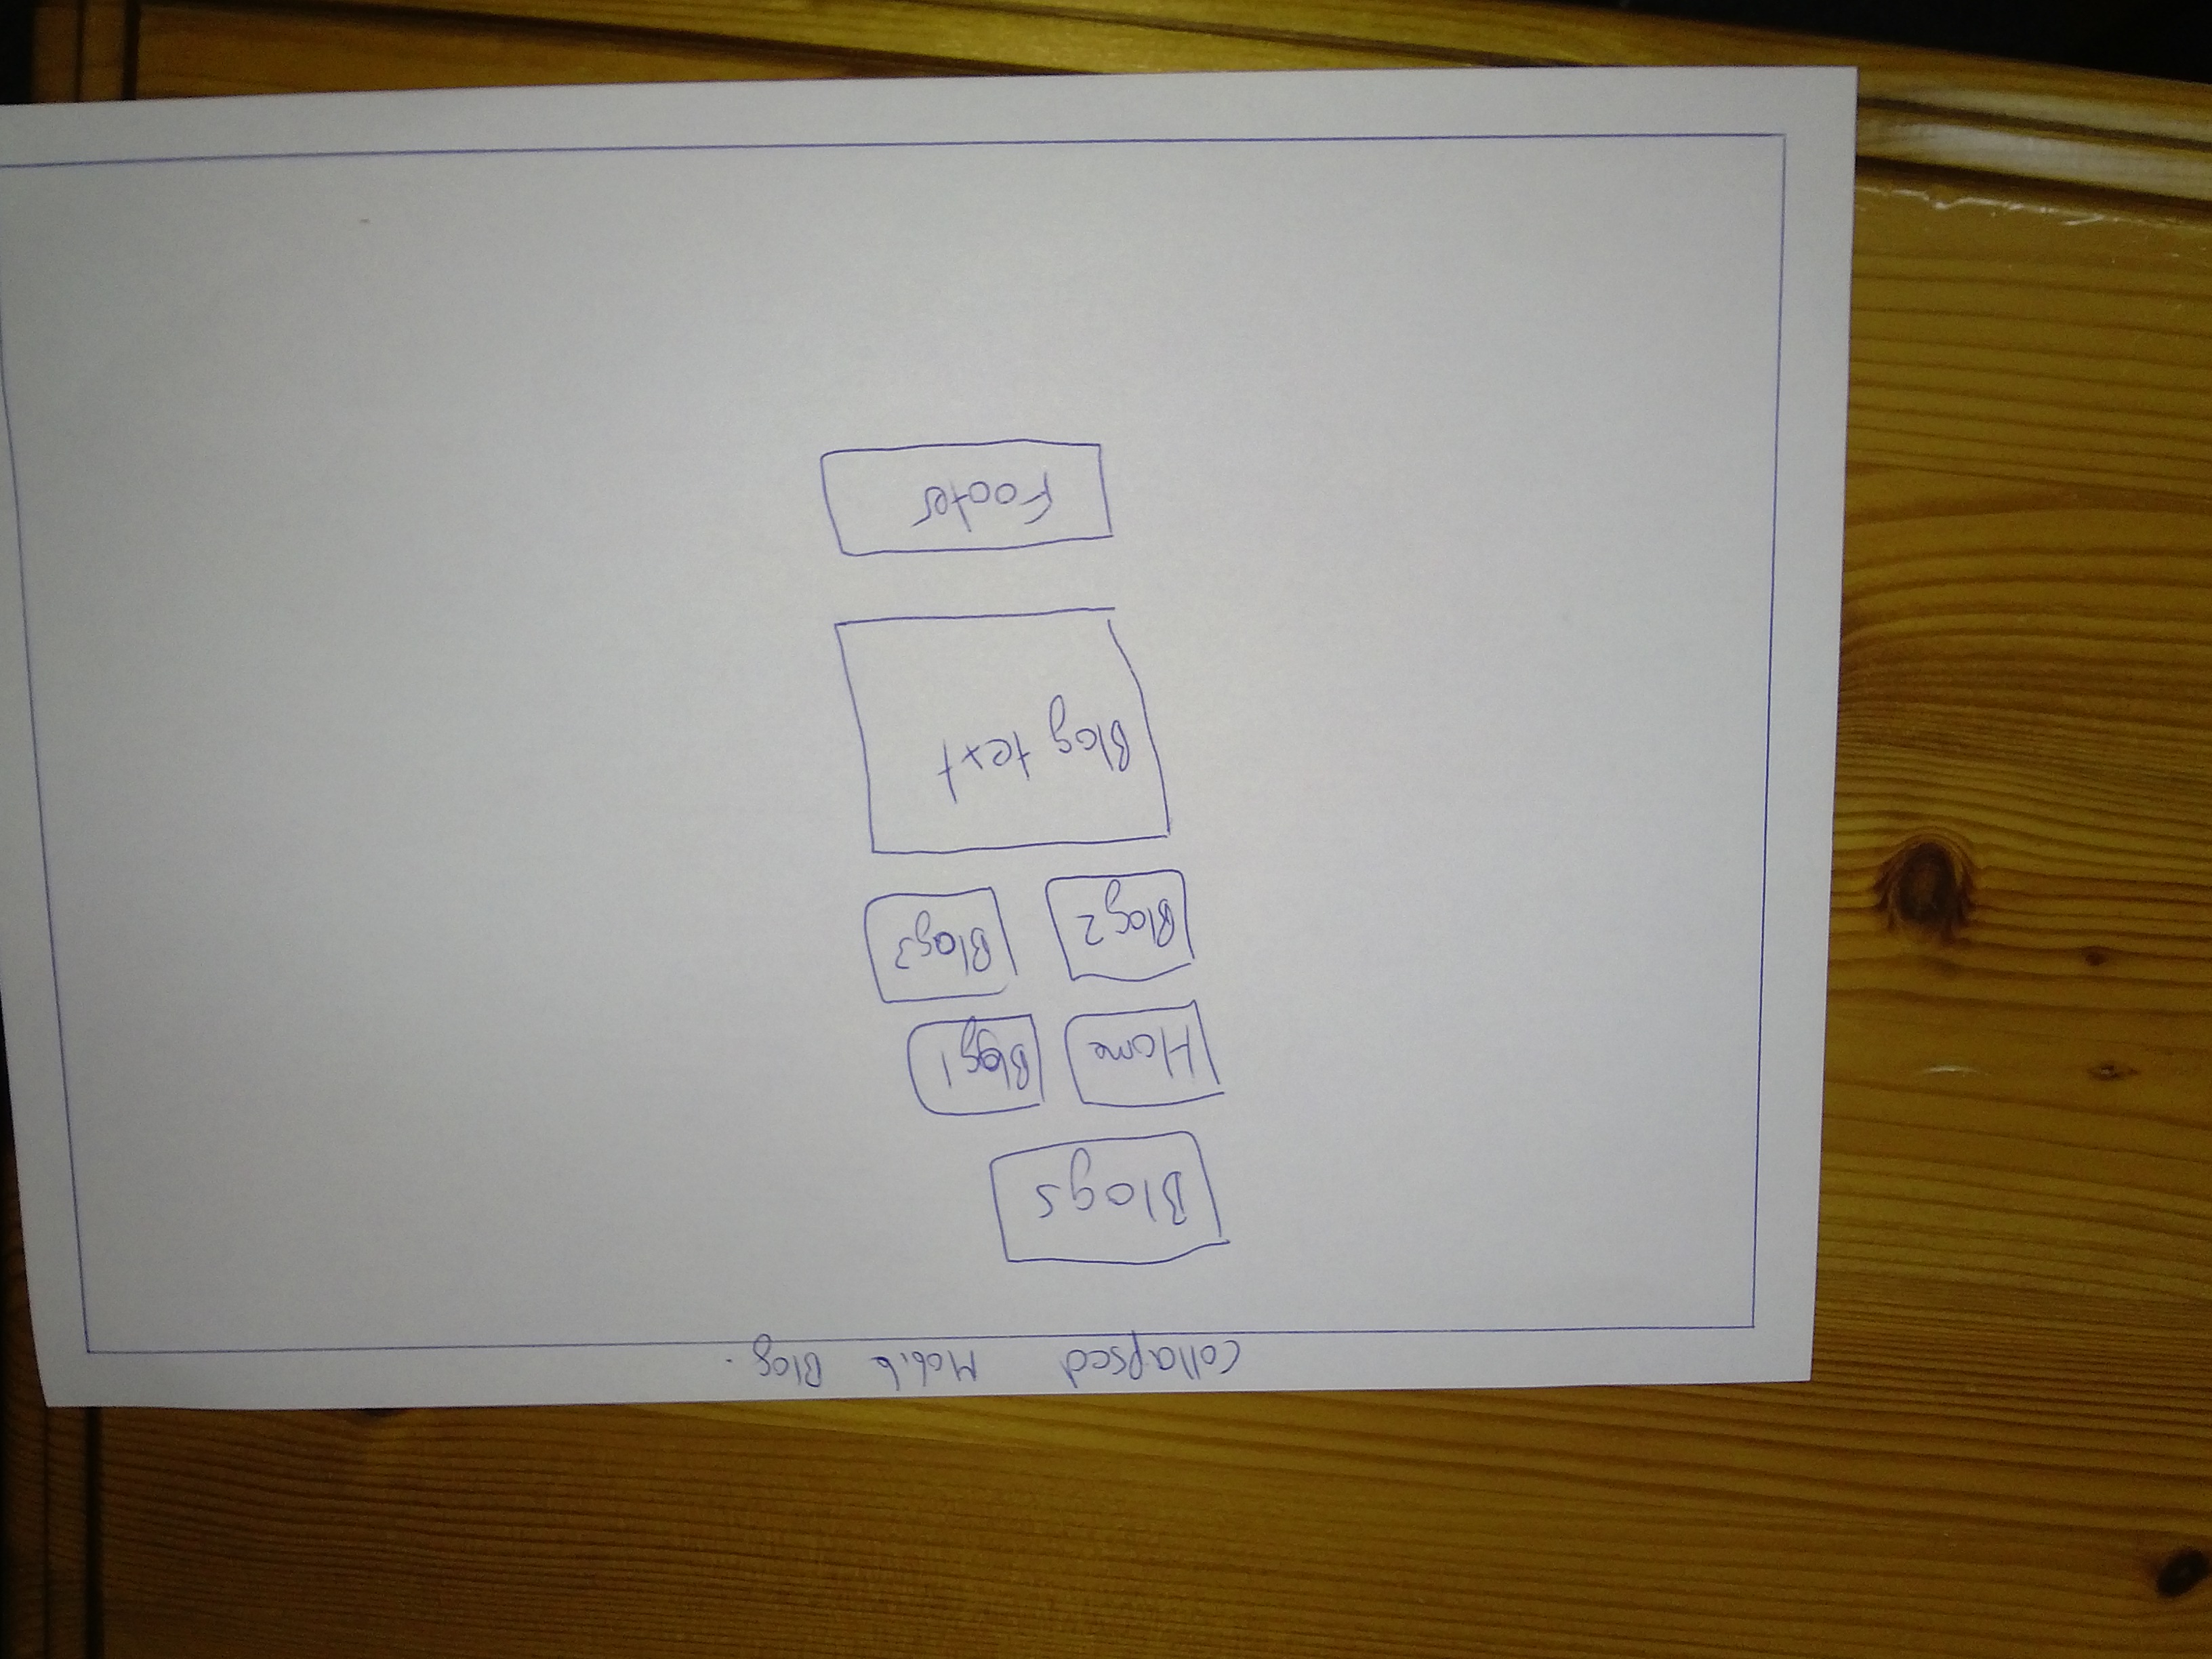 Collapsed Mobile Blog.
Blogs
Home Blog1
Blog2 Blog3
Blog text
Footer